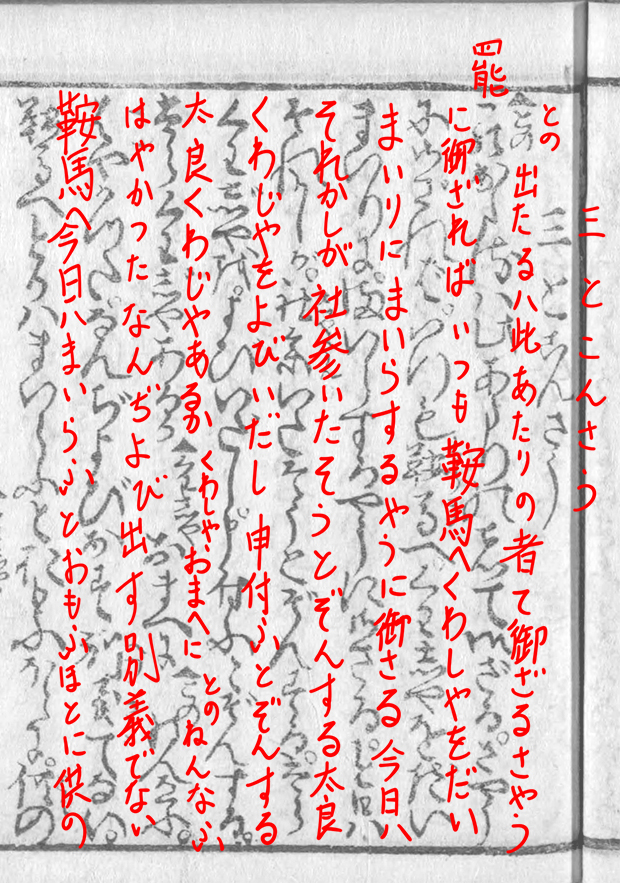 三とこんさう
との 出たるハ此あたりの者て御ざるさやう
罷
に御ざればいつも鞍馬へくわしやをだい
まいりにまいらするやうに御さる今日ハ
それかしが社参いたそうとぞんする太良
くわじやをよびいだし申付ふとぞんする
太良くわじやあるか くわしやおまへに とのねんなふ
はやかつたなんぢよび出す別義でない
鞍馬へ今日ハまいらふとおもふほとに供の